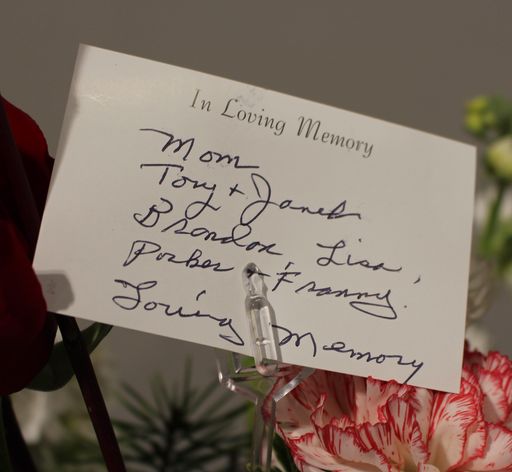 In Loving Memory
Mom
Tony + Janet
Brandon, Lisa,
Parker + Franny.
Loving Memory